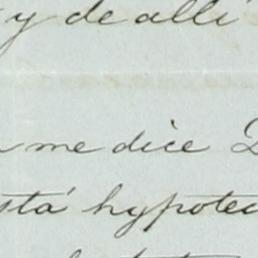 y de alli
me dice
está hypotec